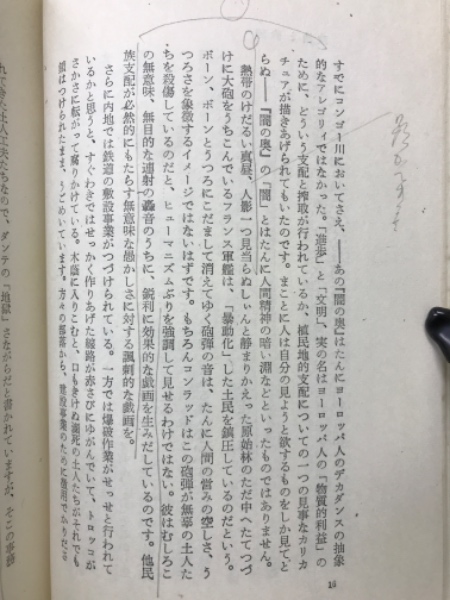 すでにコンゴー川においてさえ、――あの『闇の奥』はたんにヨーロッパ人のデカダンスの抽象
的なアレゴリィではなかった。「進歩」と「文明」、実の名はヨーロッパ人の「物質的利益」の
ために、どういう支配と搾取が行われているか、植民地的支配についての一つの見事なカリカ
チュアが描きあげられてもいたのです。まことに人は自分の見ようと欲するものをしか見てと
らぬ――『闇の奥』の「闇」とはたんに人間精神の暗い淵などといったものではありません。
熱帯のけだるい真昼、人影一つ見当らぬしいんと静まりかえった原始林のただ中へたてつづ
けに大砲をうちこんでいるフランス軍艦は、「暴動化」した土民を鎮圧しているのだという。
ボーン、ボーンとうつろにこだまして消えてゆく砲弾の音は、たんに人間の営みの空しさ、う
つろさを象徴するイメージではないはずです。もちろんコンラッドはこの砲弾が無辜の土人た
ちを殺傷しているのだと、ヒューマニズムぶりを強調して見せるわけではない。彼はむしろこ
の無意味、無目的な連射の轟音のうちに、鋭利に効果的な戯画を生みだしているのです。他民
族支配が必然的にもたらす無意味な愚かしさに対する諷刺的な戯画を。
さらに内地では鉄道の敷設事業がつづけられている。一方では爆破作業がせっせと行われて
いるかと思うと、すぐわきではせっかく作りあげた線路が赤さびにゆがんでいて、トロッコが
さかさに転がって腐りかけている。木蔭に入りこむと、口もきけぬ瀕死の土人たちがそれでも
鎖はつけられたまま、うごめいています。方々の部落から、建設事業のために強用でかりださ
れてきた土人工夫たちなので、ダンテの「地獄」さながらだと書かれていますが、そこの事務
16